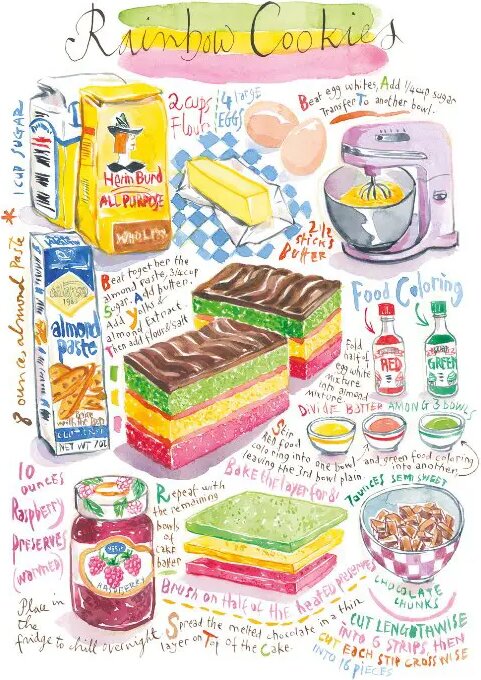 Rainbow Cookies
1 CUP SUGAR
2 cups
Flour
4 large
EGGS
Beat egg whites, Add 1/4 cup sugar
Transfer To another bowl.
Herm Burd
ALL PURPOSE
2 1/2
sticks
Butter
* 8 ounces almond Paste
almond
paste
NET WT 7OZ
Beat together the
almond paste, 3/4 cup
sugar. Add butter.
Add yolks &
almond Extract
Then add flour & salt
Food Coloring
RED
GREEN
Fold
half of
egg white
mixture
into almond
mixture
DIVIDE BUTTER AMONG 3 BOWLS
Stir
Red food
coloring into one bowl and green food coloring
into another,
leaving the 3rd bowl plain
Bake the layer for 8'
10
ounces
Raspberry
Preserves
(warmed)
RASPBERRY
Repeat with
the remaining
bowls
of
cake
batter
7 ounces SEMI SWEET
CHOCOLATE
CHUNKS
Brush on Half of the heated preserves
Place in
the
fridge to chill overnight
Spread the melted chocolate in a thin
layer on Top of the Cake.
CUT LENGTHWISE
INTO 6 STRIPS, THEN
CUT EACH STIP CROSSWISE
INTO 16 PIECES